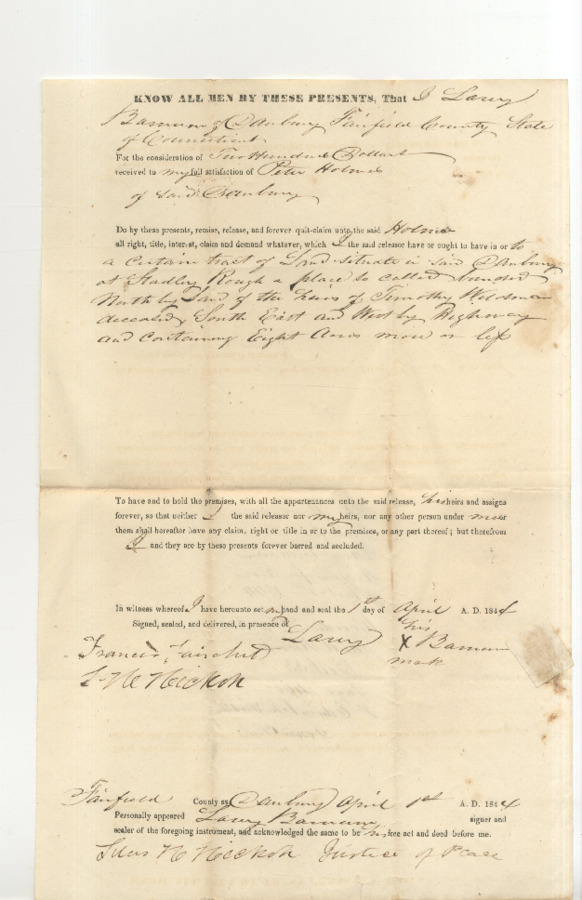 KNOW ALL MEN BY THESE PRESENTS, That I Larry
Barnum of Danbury Fairfield County State
of Connecticut
For the consideration of Two Hundred Dollars
received to my full satisfaction of Peter Holmes
of said Danbury
Do by these presents, remise, release, and forever quit-claim unto the said Holmes
all right, title, interest, claim and demand whatever, which I the said releasor have or ought to have in or to
a certain tract of Land situate in said Danbury
at Stadley Rough a place so called bounded
North by Land of the heirs of Timothy Wildman
deceased, South East and West by Highway
and containing Eight Acres more or less
To have and to hold the premises, with all the appurtenances unto the said release, his heirs and assigns
forever, so that neither I the said releasor nor my heirs, nor any other person under me or
them shall hereafter have any claim, right or title in or to the premises, or any part thereof; but therefrom
I and they are by these presents forever barred and secluded.
In witness whereof I have hereunto set my hand and seal the 1st day of April A. D. 1844
Signed, sealed, and delivered, in presence of
his
Larry X Barnum
mark
Francis Fairchild
Hickok
Fairfield County ss Danbury April 1st A. D. 1844
Personally appeared Larry Barnum signer and
sealer of the foregoing instrument, and acknowledged the same to be his free act and deed before me.
Hickok Justice of Peace